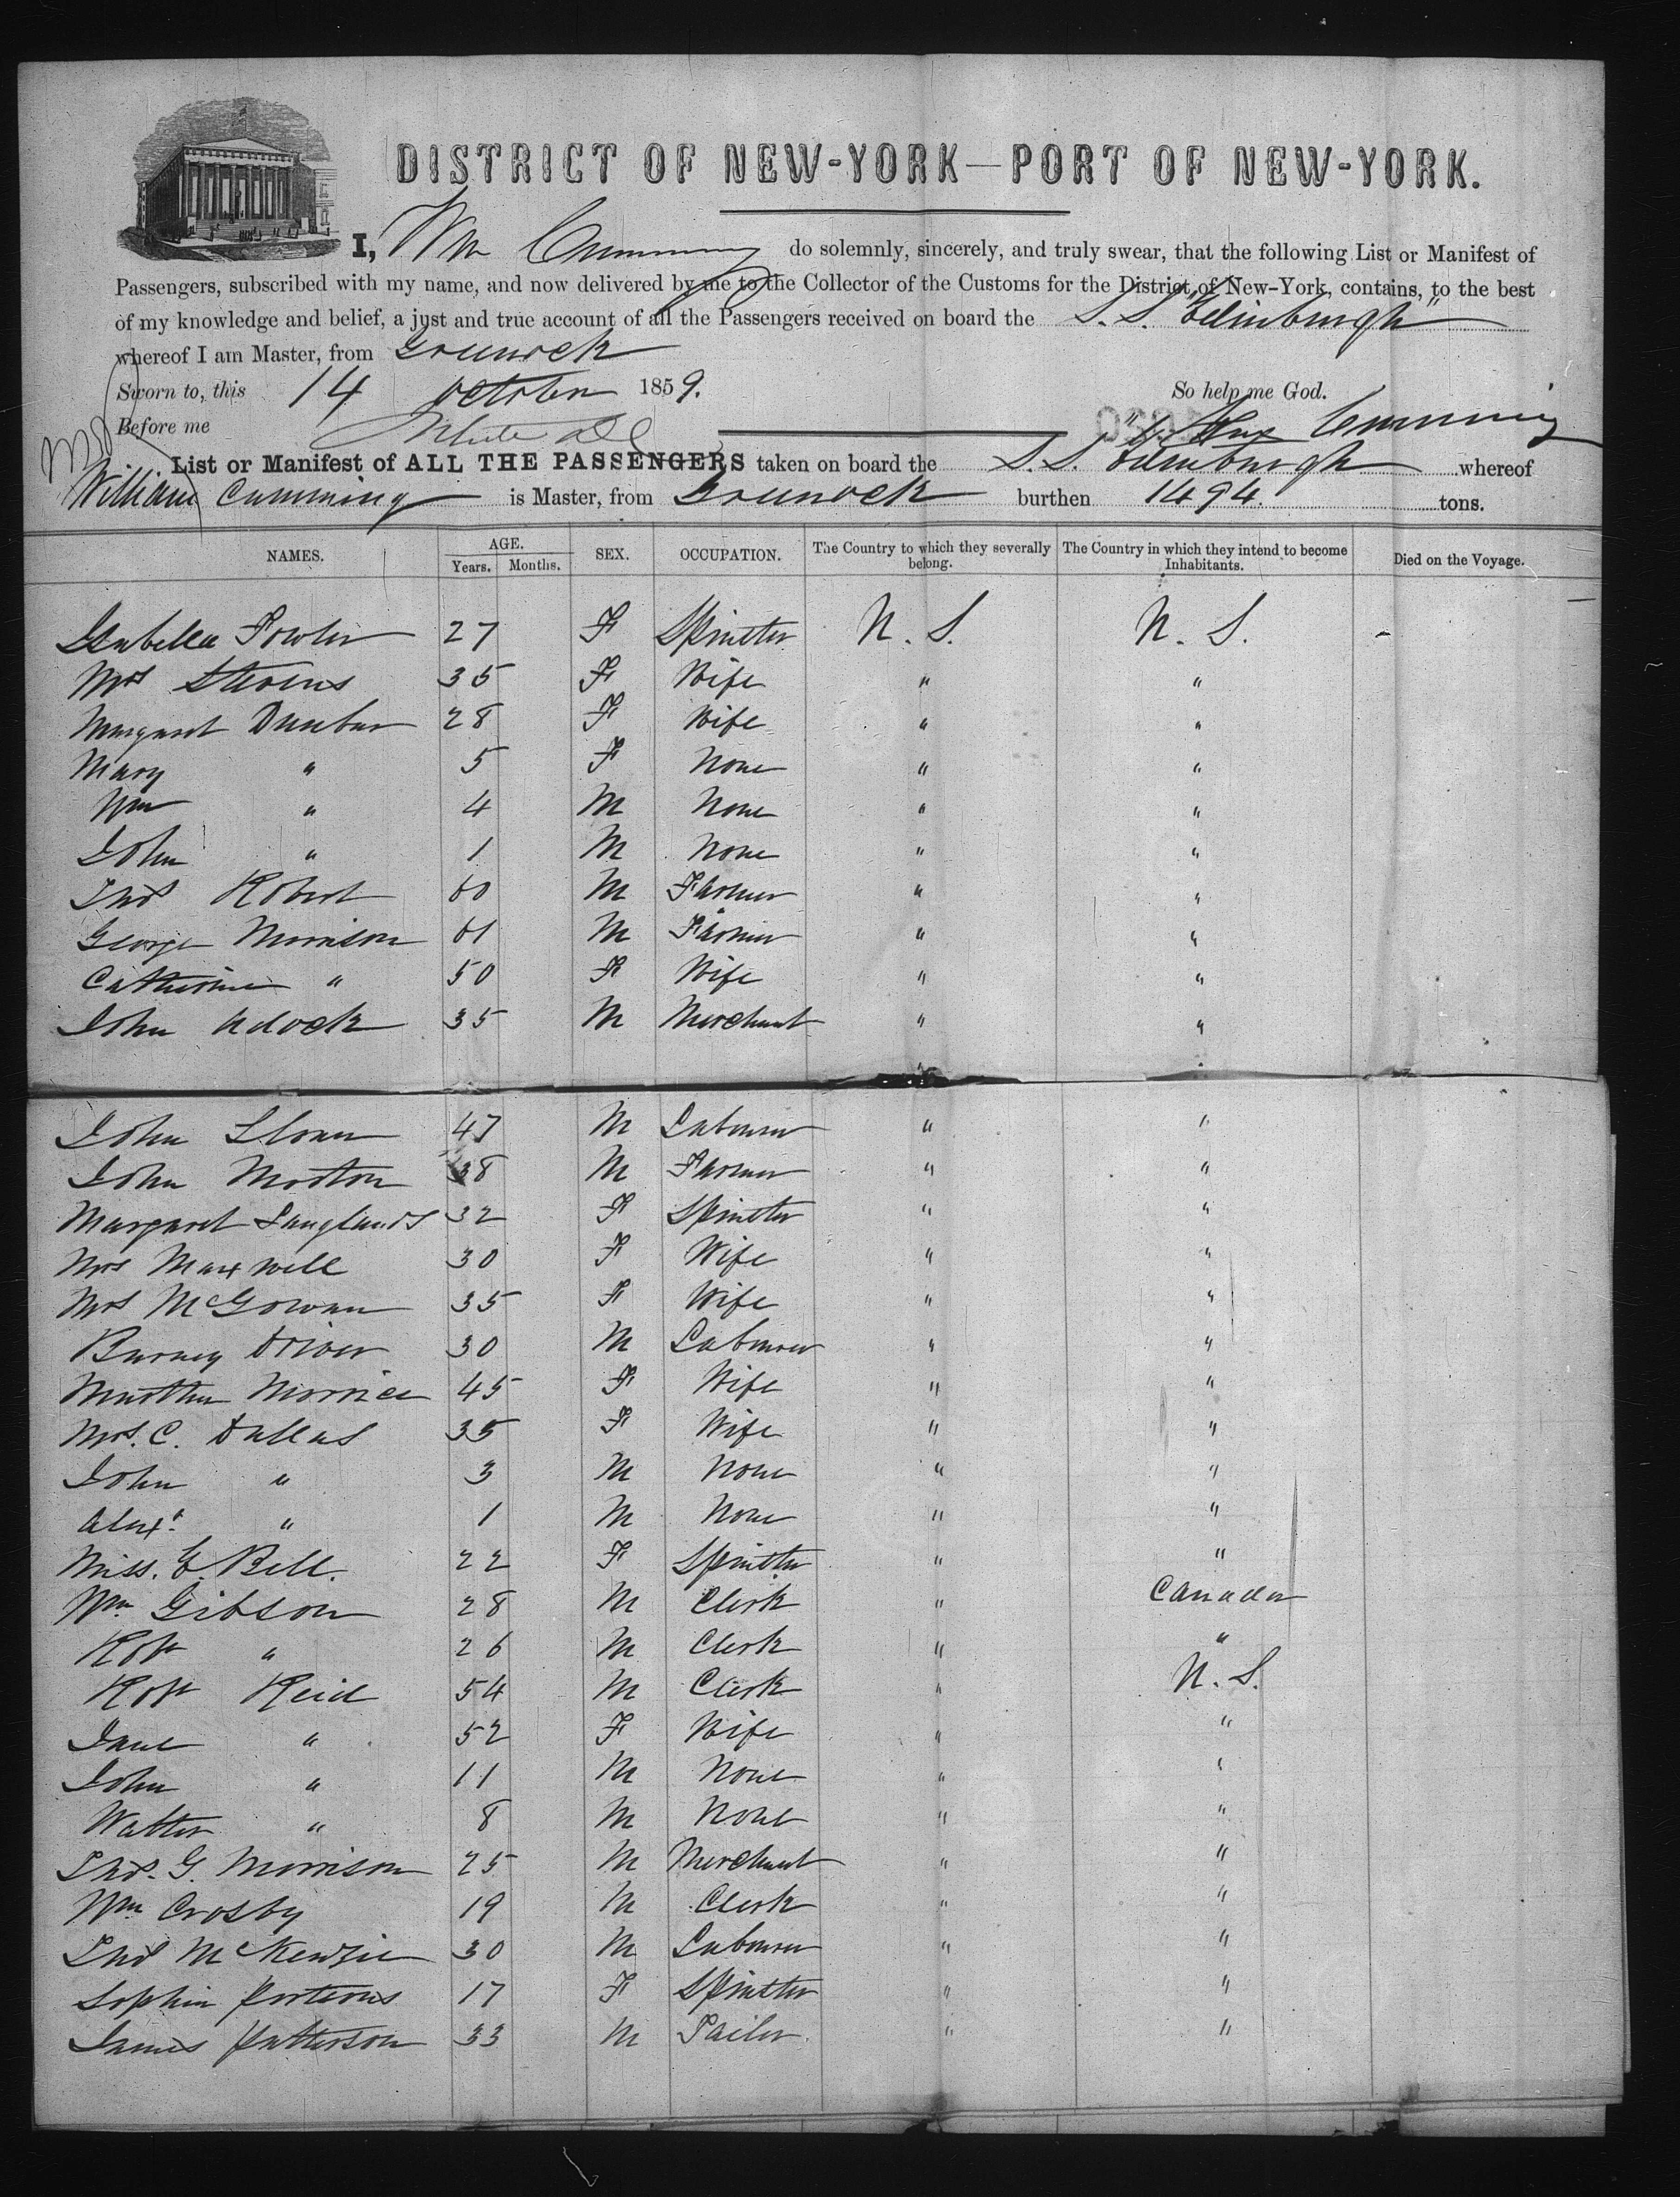 DISTRICT OF NEW-YORK—PORT OF NEW-YORK.
I, Wm Cumming do solemnly, sincerely, and truly swear, that the following List or Manifest of
Passengers, subscribed with my name, and now delivered by me to the Collector of the Customs for the District of New-York, contains, to the best
of my knowledge and belief, a just and true account of all the Passengers received on board the S. S. "Edinburgh"
whereof I am Master, from Greenock
Sworn to, this 14 October 1859. So help me God.
Before me Cumming
List or Manifest of ALL THE PASSENGERS taken on board the S. S. Edinburgh whereof
William Cumming is Master, from Greenock burthen 1494. tons.
NAMES. AGE. Years. Months. SEX. OCCUPATION. The Country to which they severally belong. The Country in which they intend to become Inhabitants. Died on the Voyage.
Isabella Fowler 27 F Spinster N. S. N. S.
Mrs Stevens 35 F Wife " "
Margaret Dunbar 28 F Wife " "
Mary " 5 F None " "
Wm " 4 M None " "
John " 1 M None " "
Thos Robert 60 M Farmer " "
George Morrison 61 M Farmer " "
Catherine " 50 F Wife " "
John 35 M Merchant " "
John Sloan 47 M Labourer " "
John Morton 38 M Farmer " "
Margaret Langlands 32 F Spinster " "
Mrs Maxwell 30 F Wife " "
Mrs McGowan 35 F Wife " "
Barney Driver 30 M Labourer " "
Martha Morrice 45 F Wife " "
Mrs. C. Dallas 35 F Wife " "
John " 3 M None " "
Alexr. " 1 M None " "
Miss. E. Bell. 22 F Spinster " "
Wm. Gibson 28 M Clerk " Canada
Robt " 26 M Clerk " "
Robt Reid 54 M Clerk " N. S.
Jane " 52 F Wife " "
John " 11 M None " "
Walter " 8 M None " "
Thos. G. Morrison 25 M Merchant " "
Wm Crosby 19 M Clerk " "
Thos McKenzie 30 M Labourer " "
Sophia Porteous 17 F Spinster " "
James Patterson 33 M Tailor " "